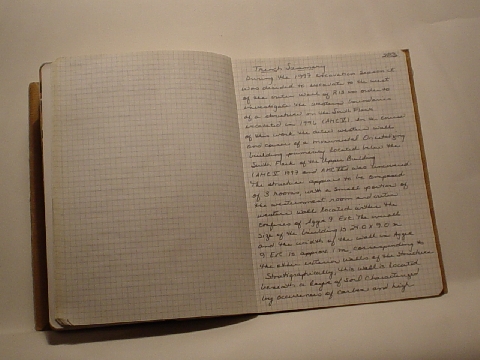 Trench Summary
During the 1997 excavation season it
was decided to excavate to the west
of the
investigate the western
of a structure on the South Flank
excavated in 1996 In the course
of this work the outer western wall
and corner of a monumental Orientalizing
building located below the
South Flank of the Upper Building
1997 and was uncovered.
The structure appears to be composed
of 3 rooms, with a small portion of
the westernmost room and outer
western wall located within the
confines of Agger 9 Ext. The overall
size of the building is
and the width of the wall in Agger
9 Ext. is approx. 1 m corresponding to
the other exterior walls of the structure.
Stratigraphically, this wall is located
beneath a layer of soil characterized
by occurrences of carbon and high